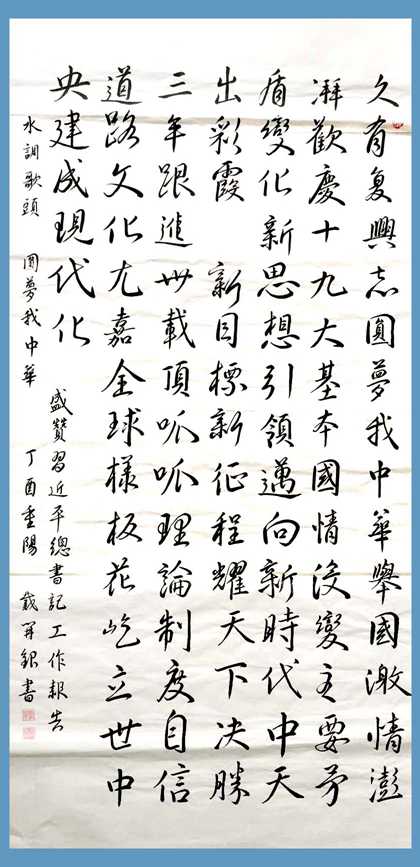 久有复興志圓夢我中華舉國激情澎
湃歡慶十九大基本國情没變主要矛
盾變化新思想引領邁向新時代中天
出彩霞 新目標新征程耀天下决勝
三年跟進卅載頂呱呱理論制度自信
道路文化尤嘉全球樣板花屹立世中
央建成現代化
盛贊習近平總書記工作報告
水調歌頭 圓夢我中華 丁酉重陽 戴開銀書